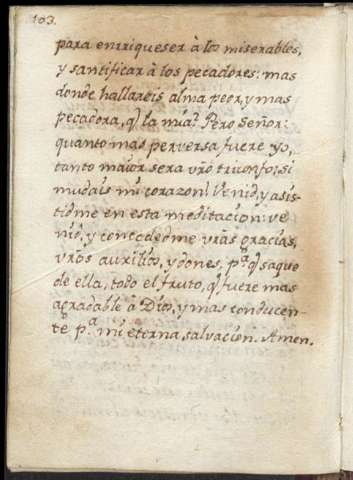 103.
para enrriqueser à los miserables,
y santificar à los pecadores: mas
donde hallareis alma peor, y mas
pecadora, q̃ la mia? Pero Señor:
quanto mas perversa fuere yo,
tanto maior sera vr̃o triunfo, si
mudais mi corazon! Venid, y asis-
tidme en esta meditacion: ve
nid, y concededme vr̃as gracias,
vr̃os auxilios, y dones, pª. q̃ saque
de ella, todo el fruto, q̃ fuere mas
agradable à Dios, y mas conducen-
te pª. mi eterna, salvacion. Amen.